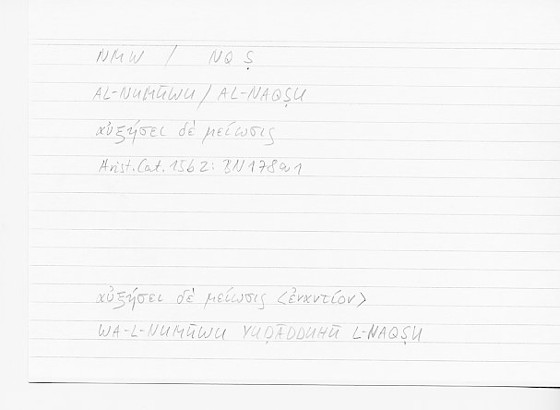 NMW / NQṢ
AL-NUMŪWU / AL-NAQṢU
αὐξήσει δὲ μείωσις
Arist. Cat. 15b2 : BN 178a1
αὐξήσει δὲ μείωσις <ἐναντίον>
WA-L-NUMŪWU YUḌĀDDUHŪ L-NAQṢU